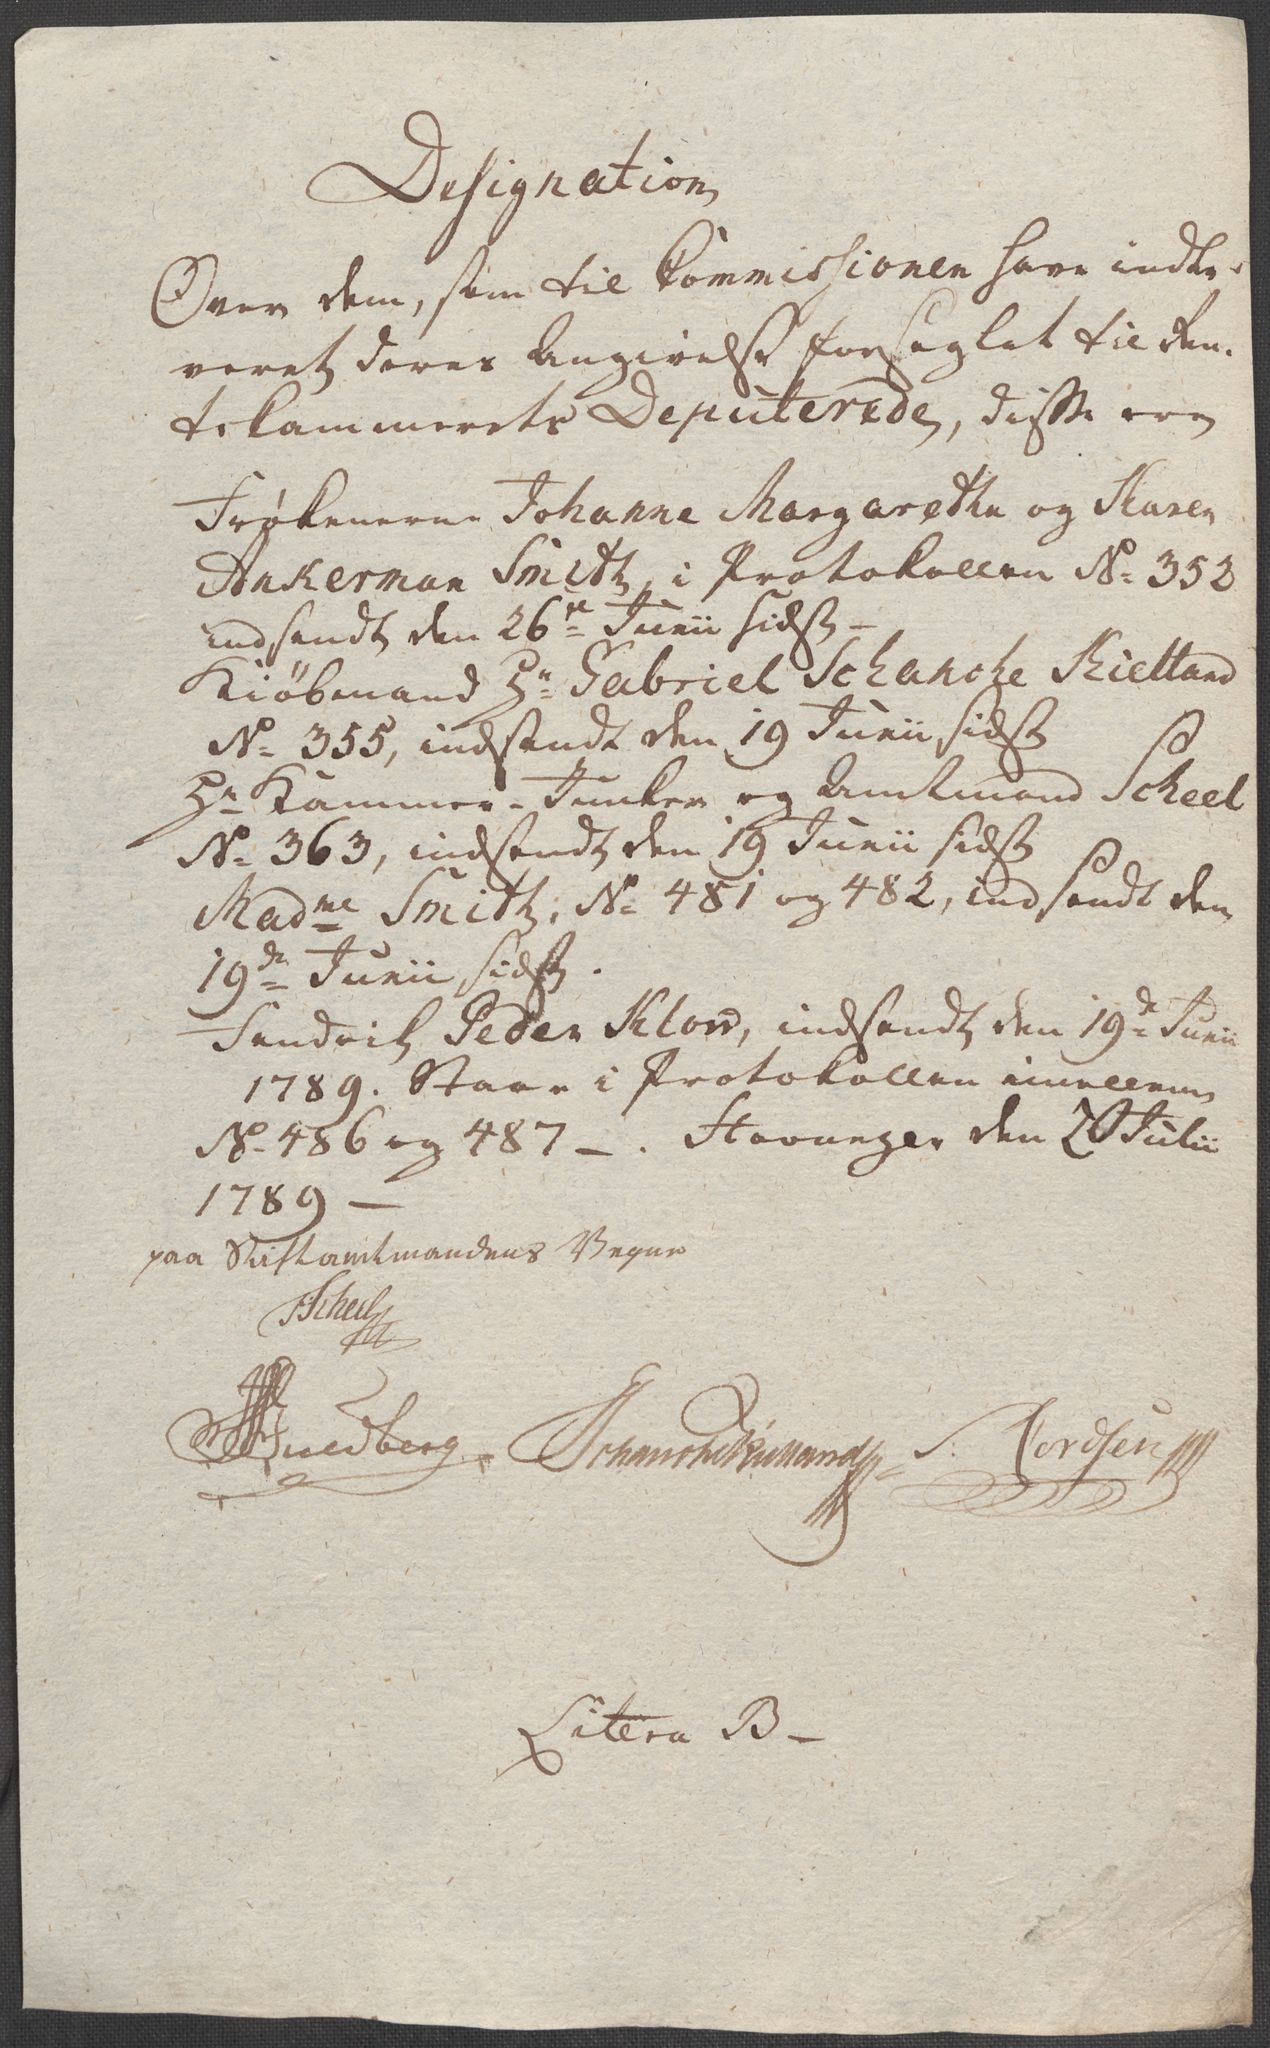 Designation
Over dem, som til Commissionen have indle-
veret deres Angivelse forseglet til Ren-
tekammerets Deputerede, disse ere
Frøkenerne Johanne Margarethe og Karen
Ankerman Smith, i Protokollen No 352
indsendt den 26de Junii sidst -
Kiöbmand Hr Gabriel Schancke Kielland
No 355, indsendt den 19 Junii sidst
Hr Kammer-Junker og Amtmand Scheel
No 363, indsendt den 19 Junii sidst
Madme Smith, No 481 og 482, indsendt den
19de Junii sidst.
Fendrik Peder Klow, indsendt den 19de Junii
1789. Staar i Protokollen imellem
No 486 og 487 - . Stavanger den Julii
1789 -
paa Stiftamtmandens Vegne
Scheel
Buedberg Schancke Kielland S. Tordsen
Litera B -